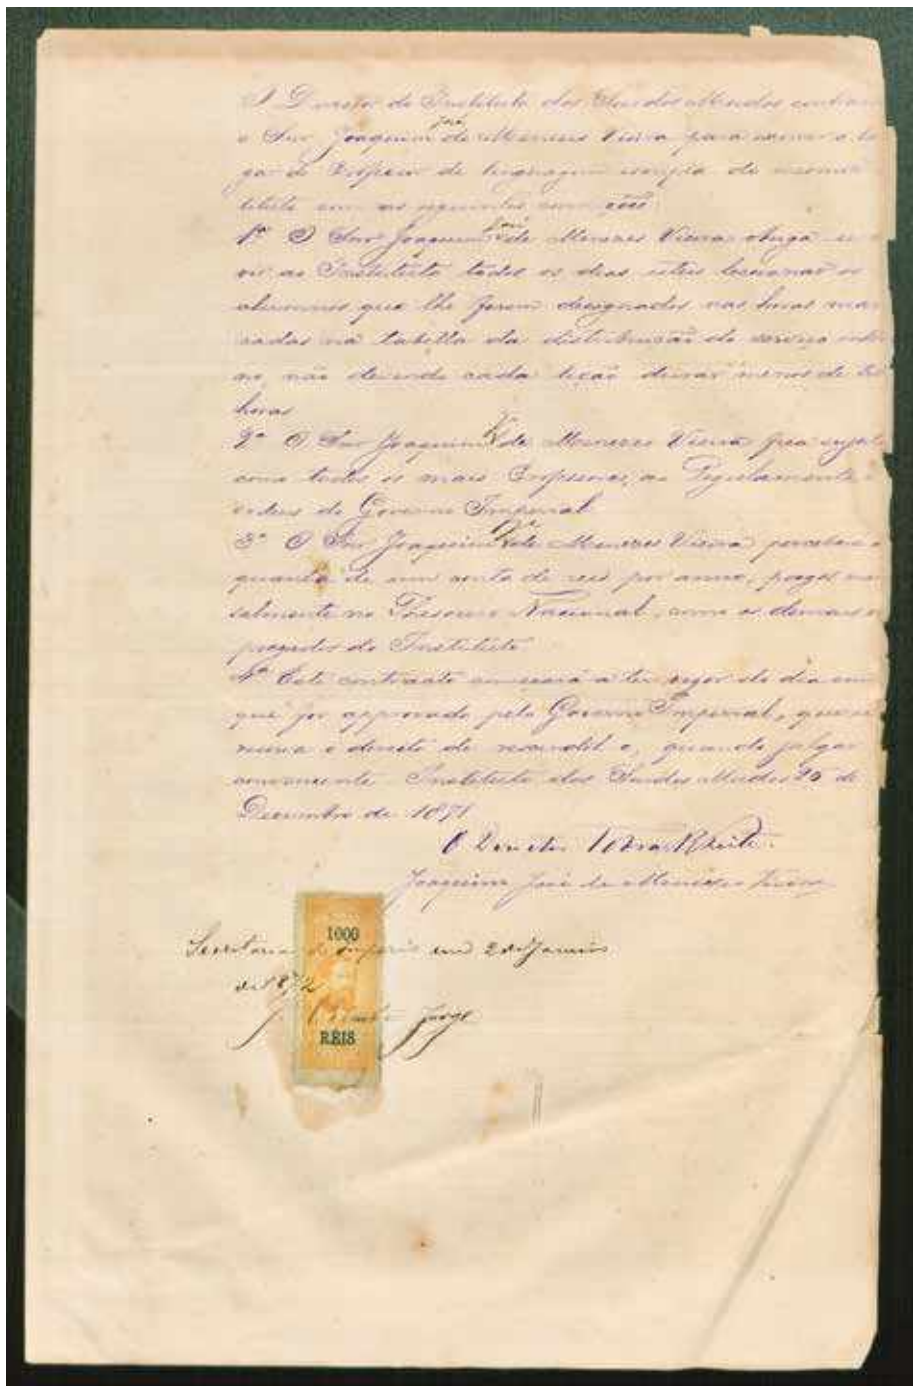 O Director do Instituto dos Surdos Mudos contrata
o Snr Joaquim José de Menezes Vieira para exercer o lu
gar de Professor de linguagem escripta do mesmo Ins
tituto com as seguintes condições:
1ª O Snr Joaquim José de Menezes Vieira obriga-se a
vir ao Instituto todos os dias uteis leccionar os
alumnos que lhe forem designados nas horas mar
cadas na tabella da distribuição do serviço inter
no, não devendo cada lição durar menos de
horas
2ª O Snr Joaquim José de Menezes Vieira fica sujeito
como todos os mais Professores, ao Regulamento e
ordens do Governo Imperial.
3ª O Snr Joaquim José de Menezes Vieira perceberá a
quantia de um conto de reis por anno, pagos men
salmente no Thesouro Nacional, como os demais em
pregados do Instituto.
4ª Este contracto começará a ter vigor do dia em
que for approvado pelo Governo Imperial, que
o direito de rescindil-o, quando julgar
conveniente. Instituto dos Surdos Mudos 20 de
Dezembro de 1871
O Director Tobias Leite.
Joaquim José de Menezes Vieira
Secretaria do Imperio em 2 de Janeiro
de 1872
1000
Jorge
REIS